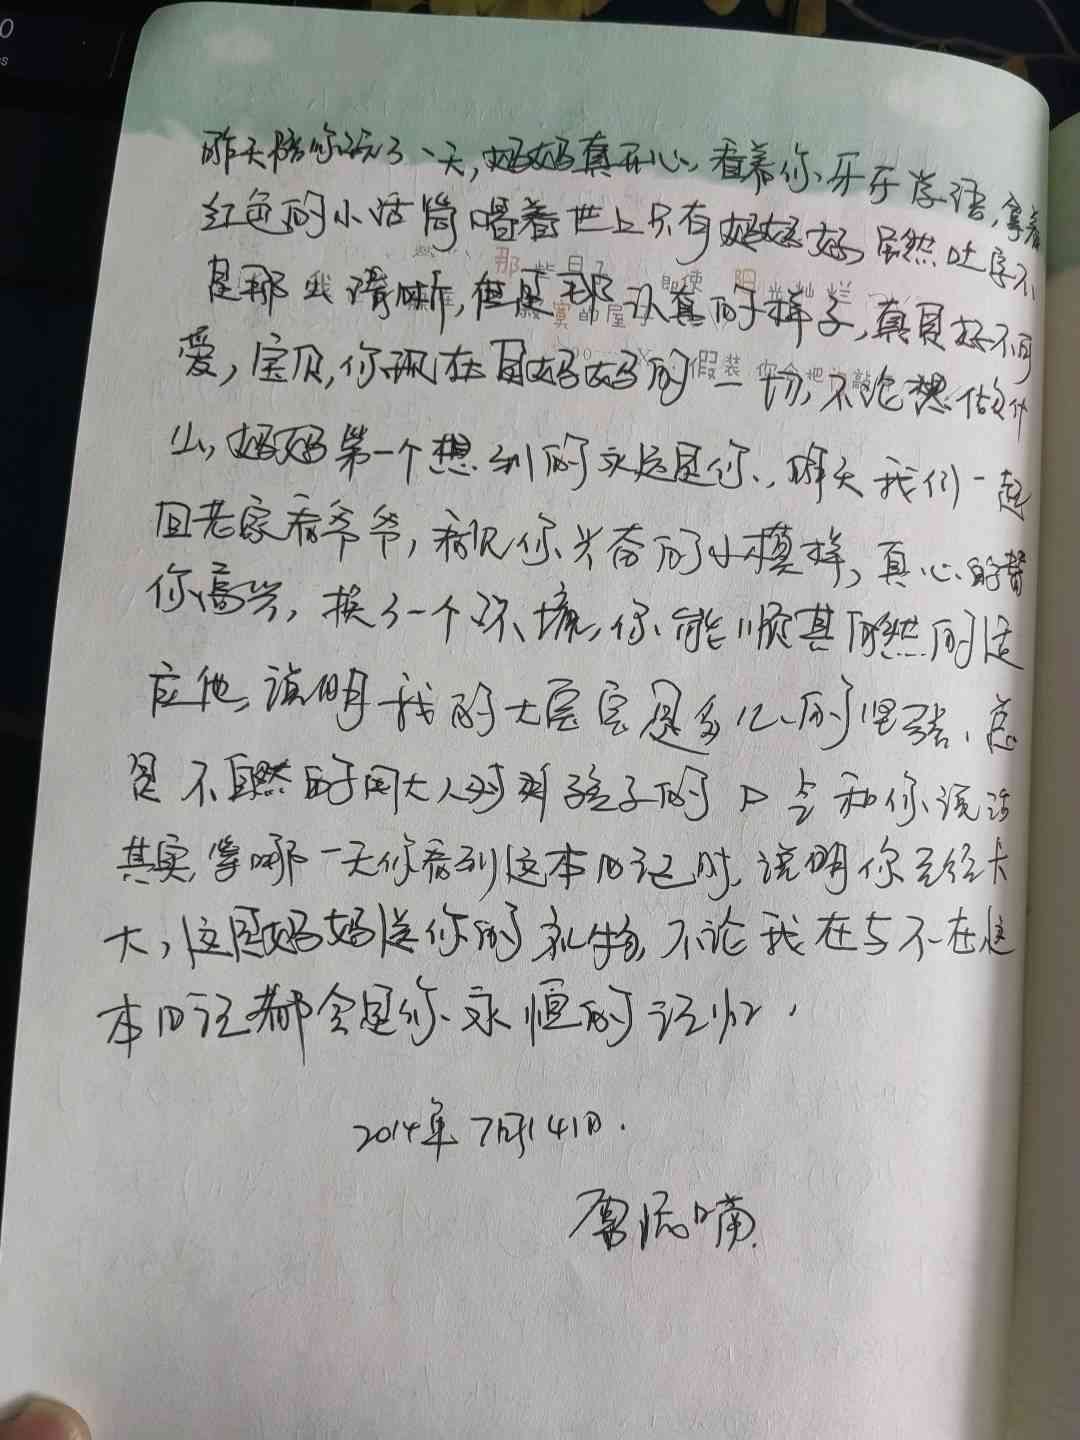 昨天陪你玩了一天，妈妈真开心，看着你牙牙学语，拿着
红色的小话筒唱着世上只有妈妈好，虽然吐字不
是那么清晰，但是那认真的样子，真是好不可
爱，宝贝，你现在是妈妈的一切，不论想做什
么，妈妈第一个想到的永远是你，昨天我们一起
回老家看爷爷，看见你兴奋的小模样，真心的替
你高兴，换了一个环境，你能顺其自然的适
应他，说明我的大宝宝是多么的坚强，总
是不自然的用大人对孩子的口气和你说话
其实，等哪一天你看到这本日记时，说明你已经长
大，这是妈妈送你的礼物，不论我在与不在这
本日记都会是你永恒的记忆．
2014年7月14日．